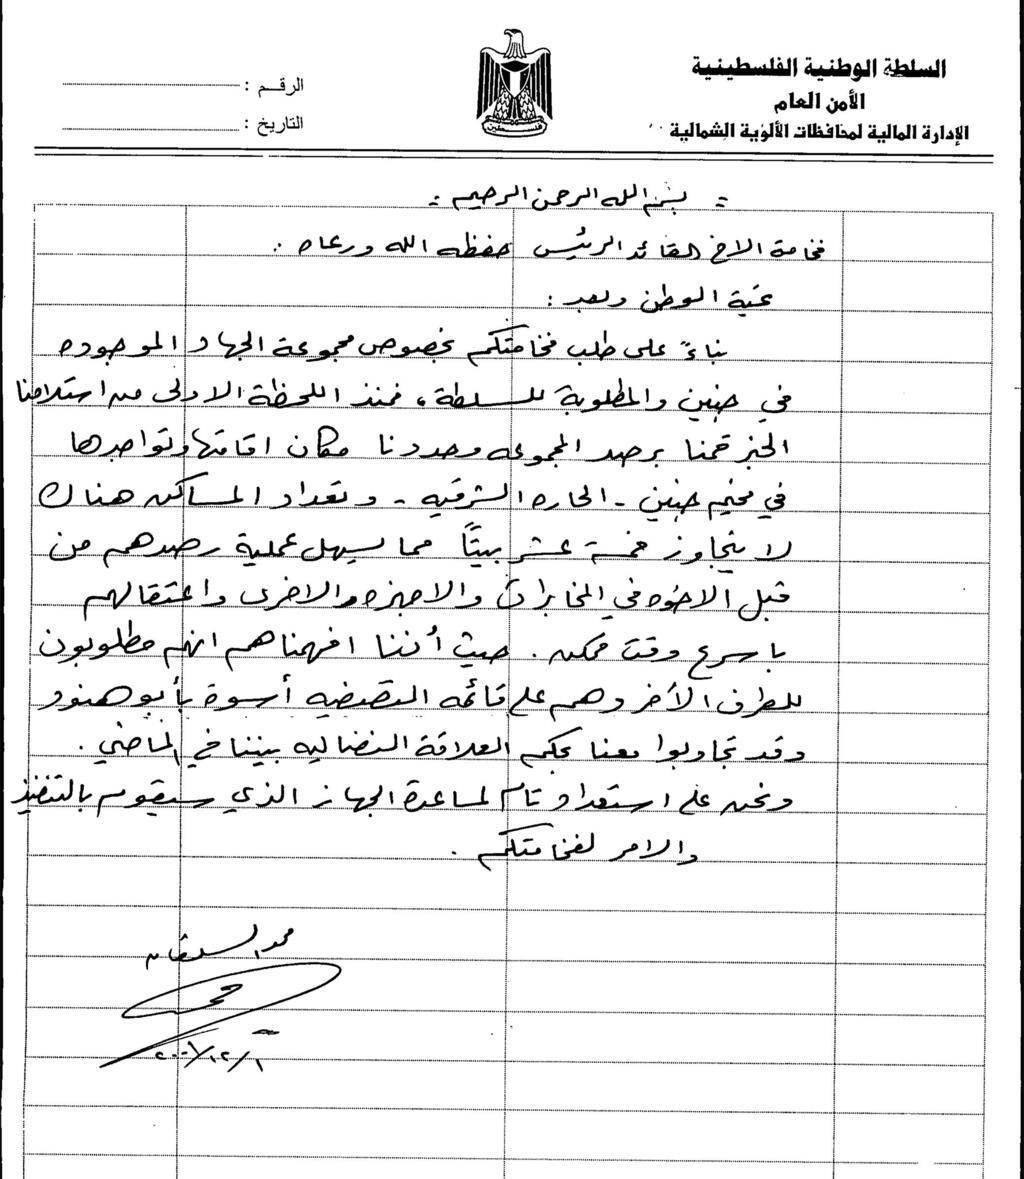 السلطة الوطنية الفلسطينية
الأمن العام
الإدارة المالية لمحافظات الألوية الشمالية
الرقم :
التاريخ :
فلسطين
بسم الله الرحمن الرحيم
فخامة الاخ القائد الرئيس حفظه الله ورعاه :
تحية الوطن وبعد :
بناءً على طلب فخامتكم بخصوص مجموعة الجهاد الموجوده
في جنين والمطلوبة للسلطة ، فمنذ اللحظة الاولى من استلامنا
الخبر قمنا برصد المجموعه وحددنا مكان اقامتها وتواجدها
في مخيم جنين - الحاره الشرقيه - وتعداد المساكن هناك
لا يتجاوز خمسة عشر بيتاً مما يسهل عملية رصدهم من
قبل الاخوه في المخابرات والاجهزه الاخرى واعتقالهم
باسرع وقت ممكن . حيث أننا افهمناهم انهم مطلوبون
للطرف الآخر وهم على قائمه التصفيه أسوة بأبو هنود
وقد تجاوبوا معنا بحكم العلاقة النضاليه بيننا في الماضي .
ونحن على استعداد تام لمساعدة الجهاز الذي سيقوم بالتنفيذ
والامر لفخامتكم .